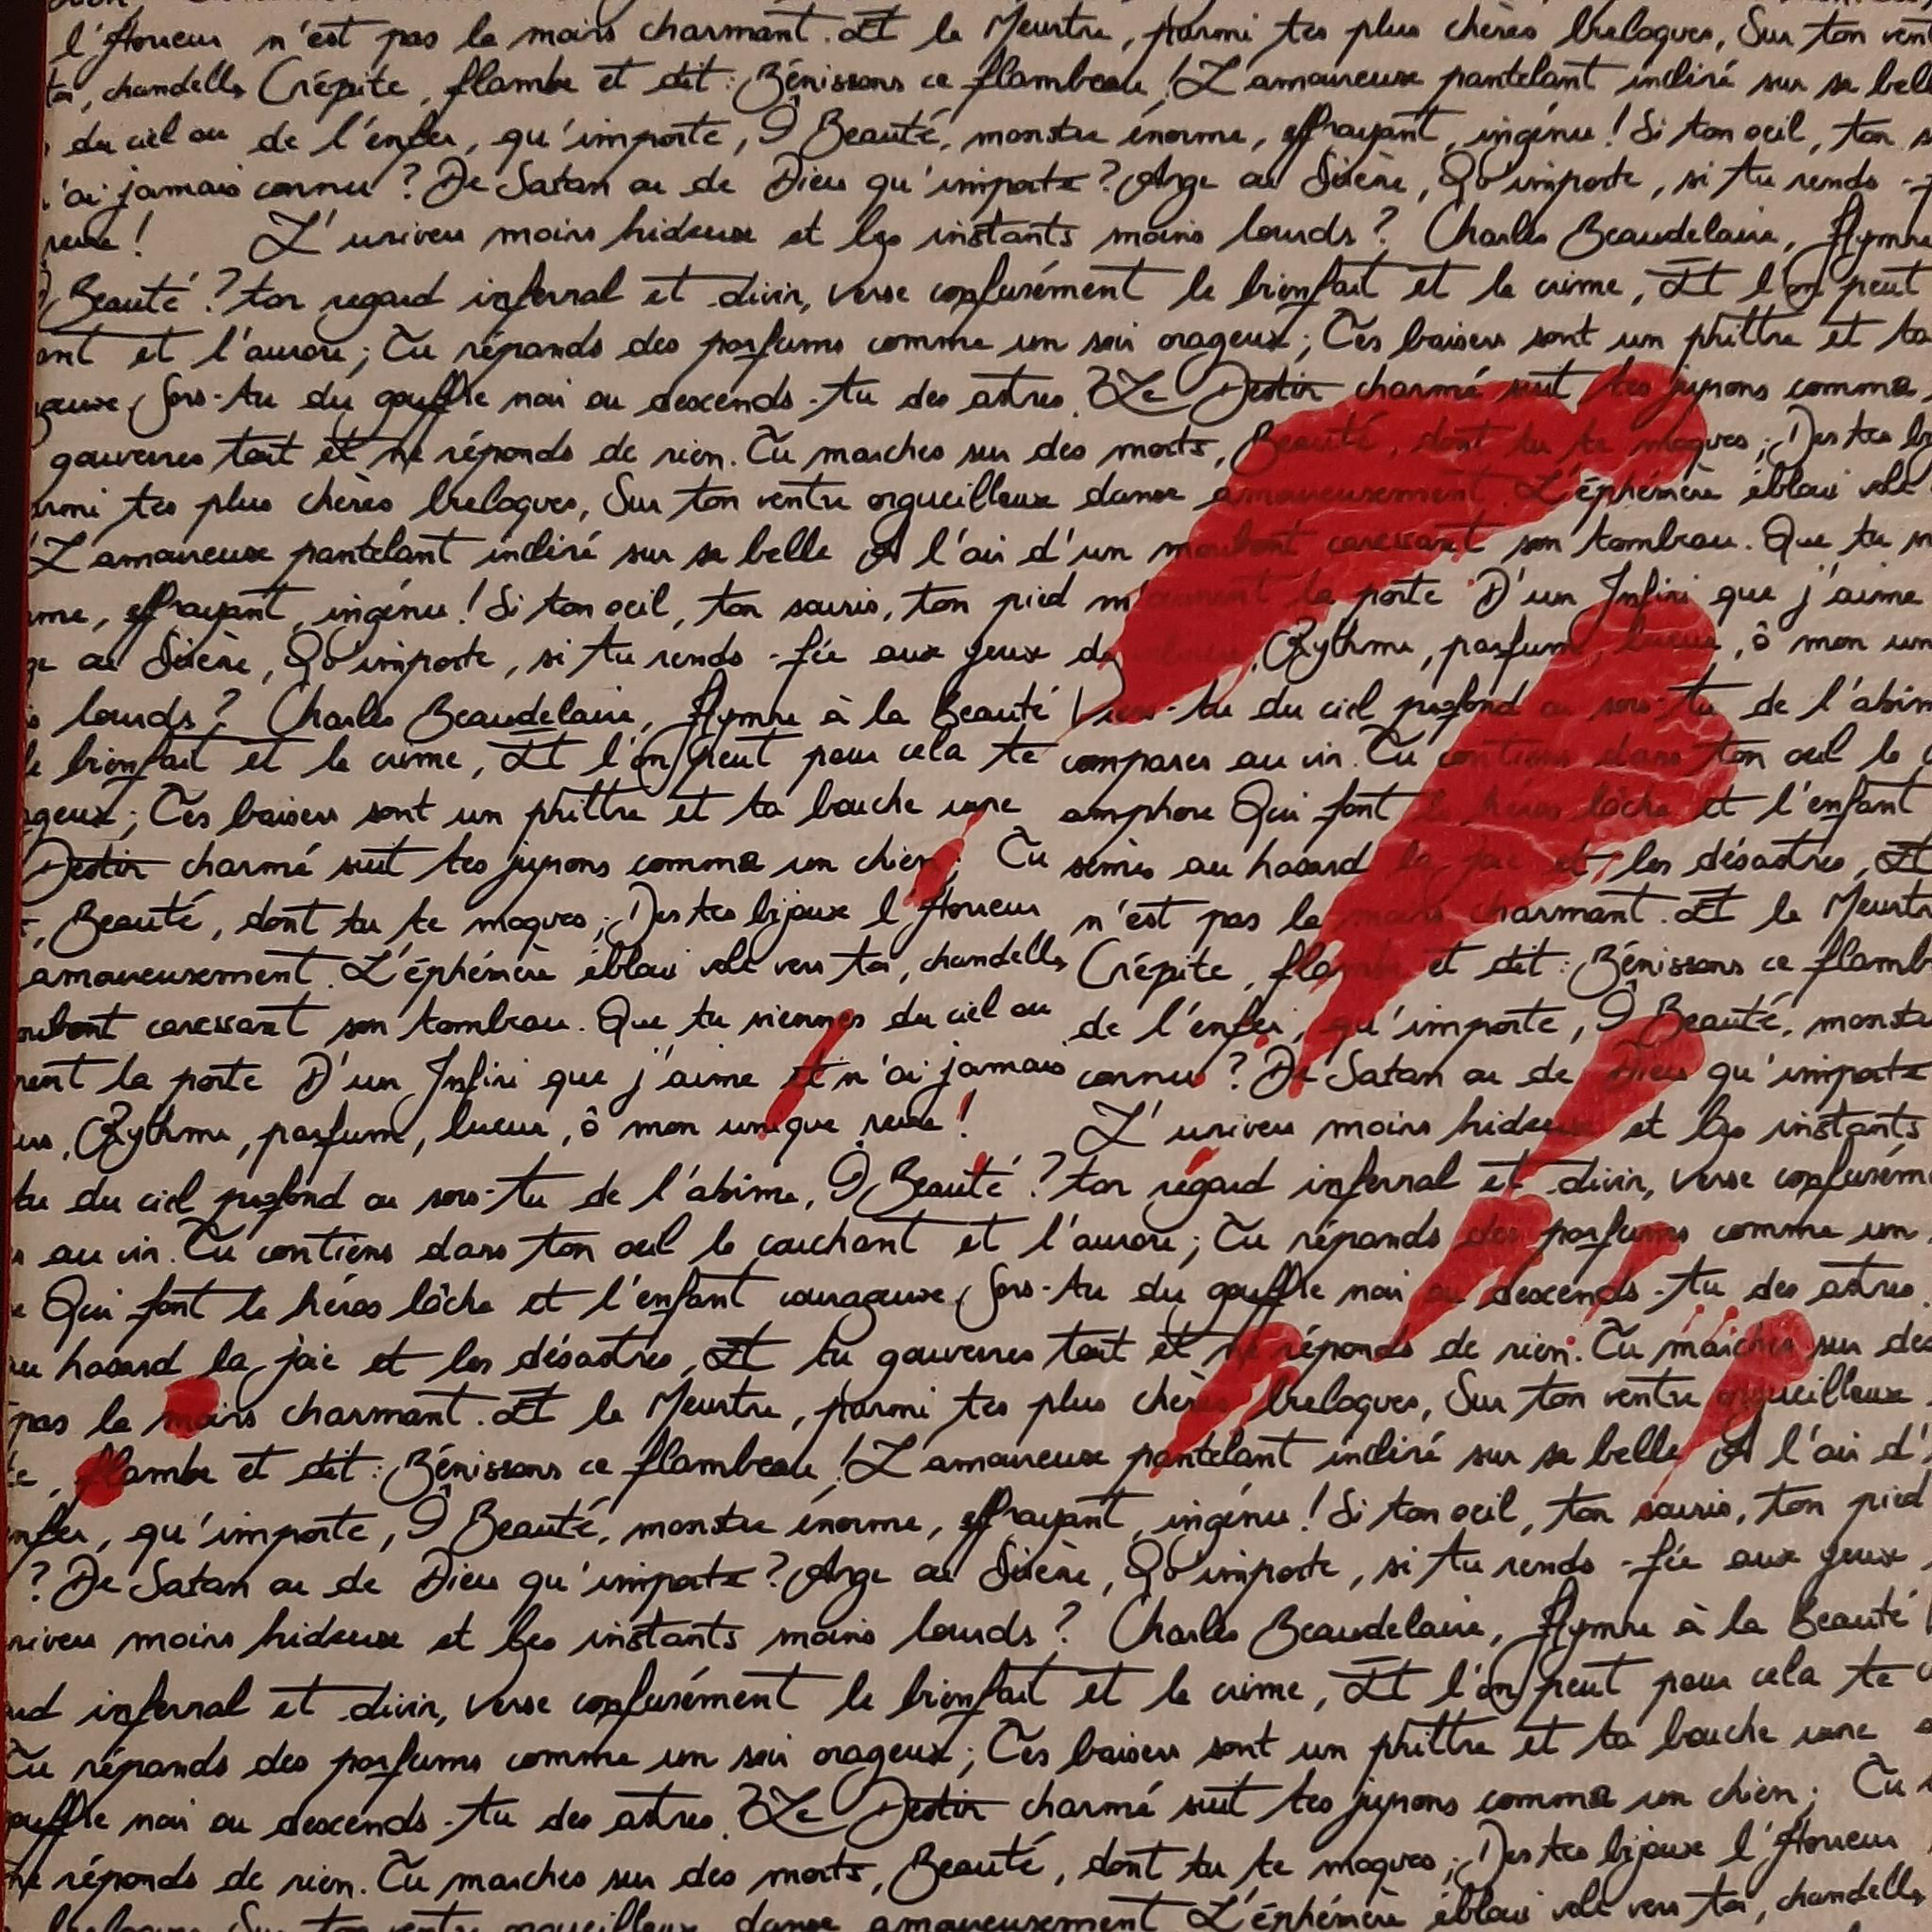 l'Horreur n'est pas le moins charmant. Et le Meurtre, parmi tes plus chères breloques, Sur ton vent
toi, chandelle, Crépite, flambe et dit : Bénissons ce flambeau ! L'amoureux pantelant incliné sur sa belle
du ciel ou de l'enfer, qu'importe, Ô Beauté, monstre énorme, effrayant, ingénu ! Si ton oeil, ton s
n'ai jamais connu ? De Satan ou de Dieu qu'importe ? Ange ou Sirène, Qu'importe, si tu rends - f
reine ! L'univers moins hideux et les instants moins lourds ? Charles Beaudelaire, Hymne
Ô Beauté ? ton regard infernal et divin, verse confusément le bienfait et le crime, Et l'on peut
ant et l'aurore ; Tu répands des parfums comme un soir orageux ; Tes baisers sont un philtre et ta
ageux, Sors-tu du gouffre noir ou descends-tu des astres ? Le Destin charmé suit tes jupons comme
gouvernes tout et ne réponds de rien. Tu marches sur des morts, Beauté, dont tu te moques ; Des tes bi
armi tes plus chères breloques, Sur ton ventre orgueilleux danse amoureusement. L'éphémère ébloui vole
L'amoureux pantelant incliné sur sa belle A l'air d'un moribont caressant son tombeau. Que tu
rme, effrayant, ingénu ! Si ton oeil, ton souris, ton pied m'ouvrent la porte D'un Infini que j'aime
ge ou Sirène, Qu'importe, si tu rends - fée aux yeux de velours, Rythme, parfum, lueur, ô mon un
s lourds ? Charles Beaudelaire, Hymne à la Beauté Viens-tu du ciel profond ou sors-tu de l'abim
le bienfait et le crime, Et l'on peut pour cela te comparer au vin. Tu contiens dans ton oeil le c
ageux ; Tes baisers sont un philtre et ta bouche une amphore Qui font le héros lâche et l'enfant
Destin charmé suit tes jupons comme un chien ; Tu sèmes au hasard la joie et les désastres, Et
, Beauté, dont tu te moques ; Des tes bijoux l'Horreur n'est pas le moins charmant. Et le Meurtr
amoureusement. L'éphémère ébloui vole vers toi, chandelle, Crépite, flambe et dit : Bénissons ce flamb
oribont caressant son tombeau. Que tu viennes du ciel ou de l'enfer, qu'importe, Ô Beauté, monstr
rent la porte D'un Infini que j'aime et n'ai jamais connu ? De Satan ou de Dieu qu'importe
urs, Rythme, parfum, lueur, ô mon unique reine ! L'univers moins hideux et les instants
tu du ciel profond ou sors-tu de l'abime, Ô Beauté ? ton regard infernal et divin, verse confusém
r au vin. Tu contiens dans ton oeil le couchant et l'aurore ; Tu répands des parfums comme un
e Qui font le héros lâche et l'enfant courageux, Sors-tu du gouffre noir ou descends-tu des astres
au hasard la joie et les désastres, Et tu gouvernes tout et ne réponds de rien. Tu marches sur des
pas le moins charmant. Et le Meurtre, parmi tes plus chères breloques, Sur ton ventre orgueilleux
te, flambe et dit : Bénissons ce flambeau ! L'amoureux pantelant incliné sur sa belle A l'air d'
nfer, qu'importe, Ô Beauté, monstre énorme, effrayant, ingénu ! Si ton oeil, ton souris, ton pied
? De Satan ou de Dieu qu'importe ? Ange ou Sirène, Qu'importe, si tu rends - fée aux yeux
nivers moins hideux et les instants moins lourds ? Charles Beaudelaire, Hymne à la Beauté
rd infernal et divin, verse confusément le bienfait et le crime, Et l'on peut pour cela te c
Tu répands des parfums comme un soir orageux ; Tes baisers sont un philtre et ta bouche une
ouffre noir ou descends-tu des astres ? Le Destin charmé suit tes jupons comme un chien ; Tu
ne réponds de rien. Tu marches sur des morts, Beauté, dont tu te moques ; Des tes bijoux l'Horreur
breloques, Sur ton ventre orgueilleux danse amoureusement L'éphémère ébloui vole vers toi, chandelle